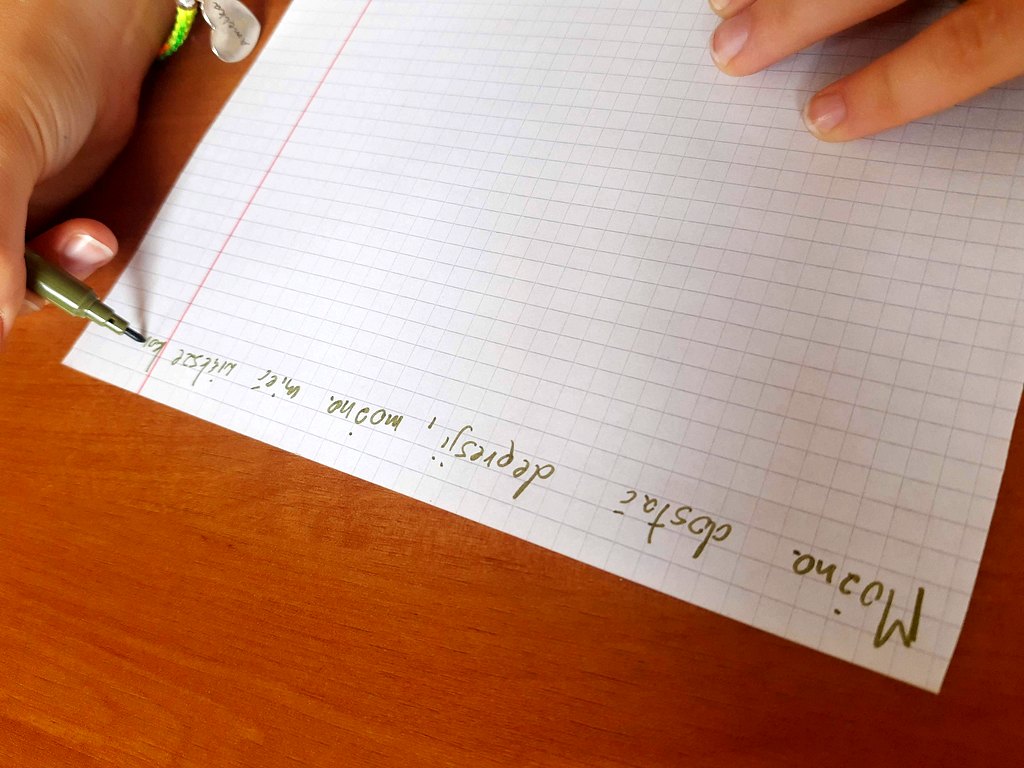 Można dostać depresji, można mieć większe
Amelka